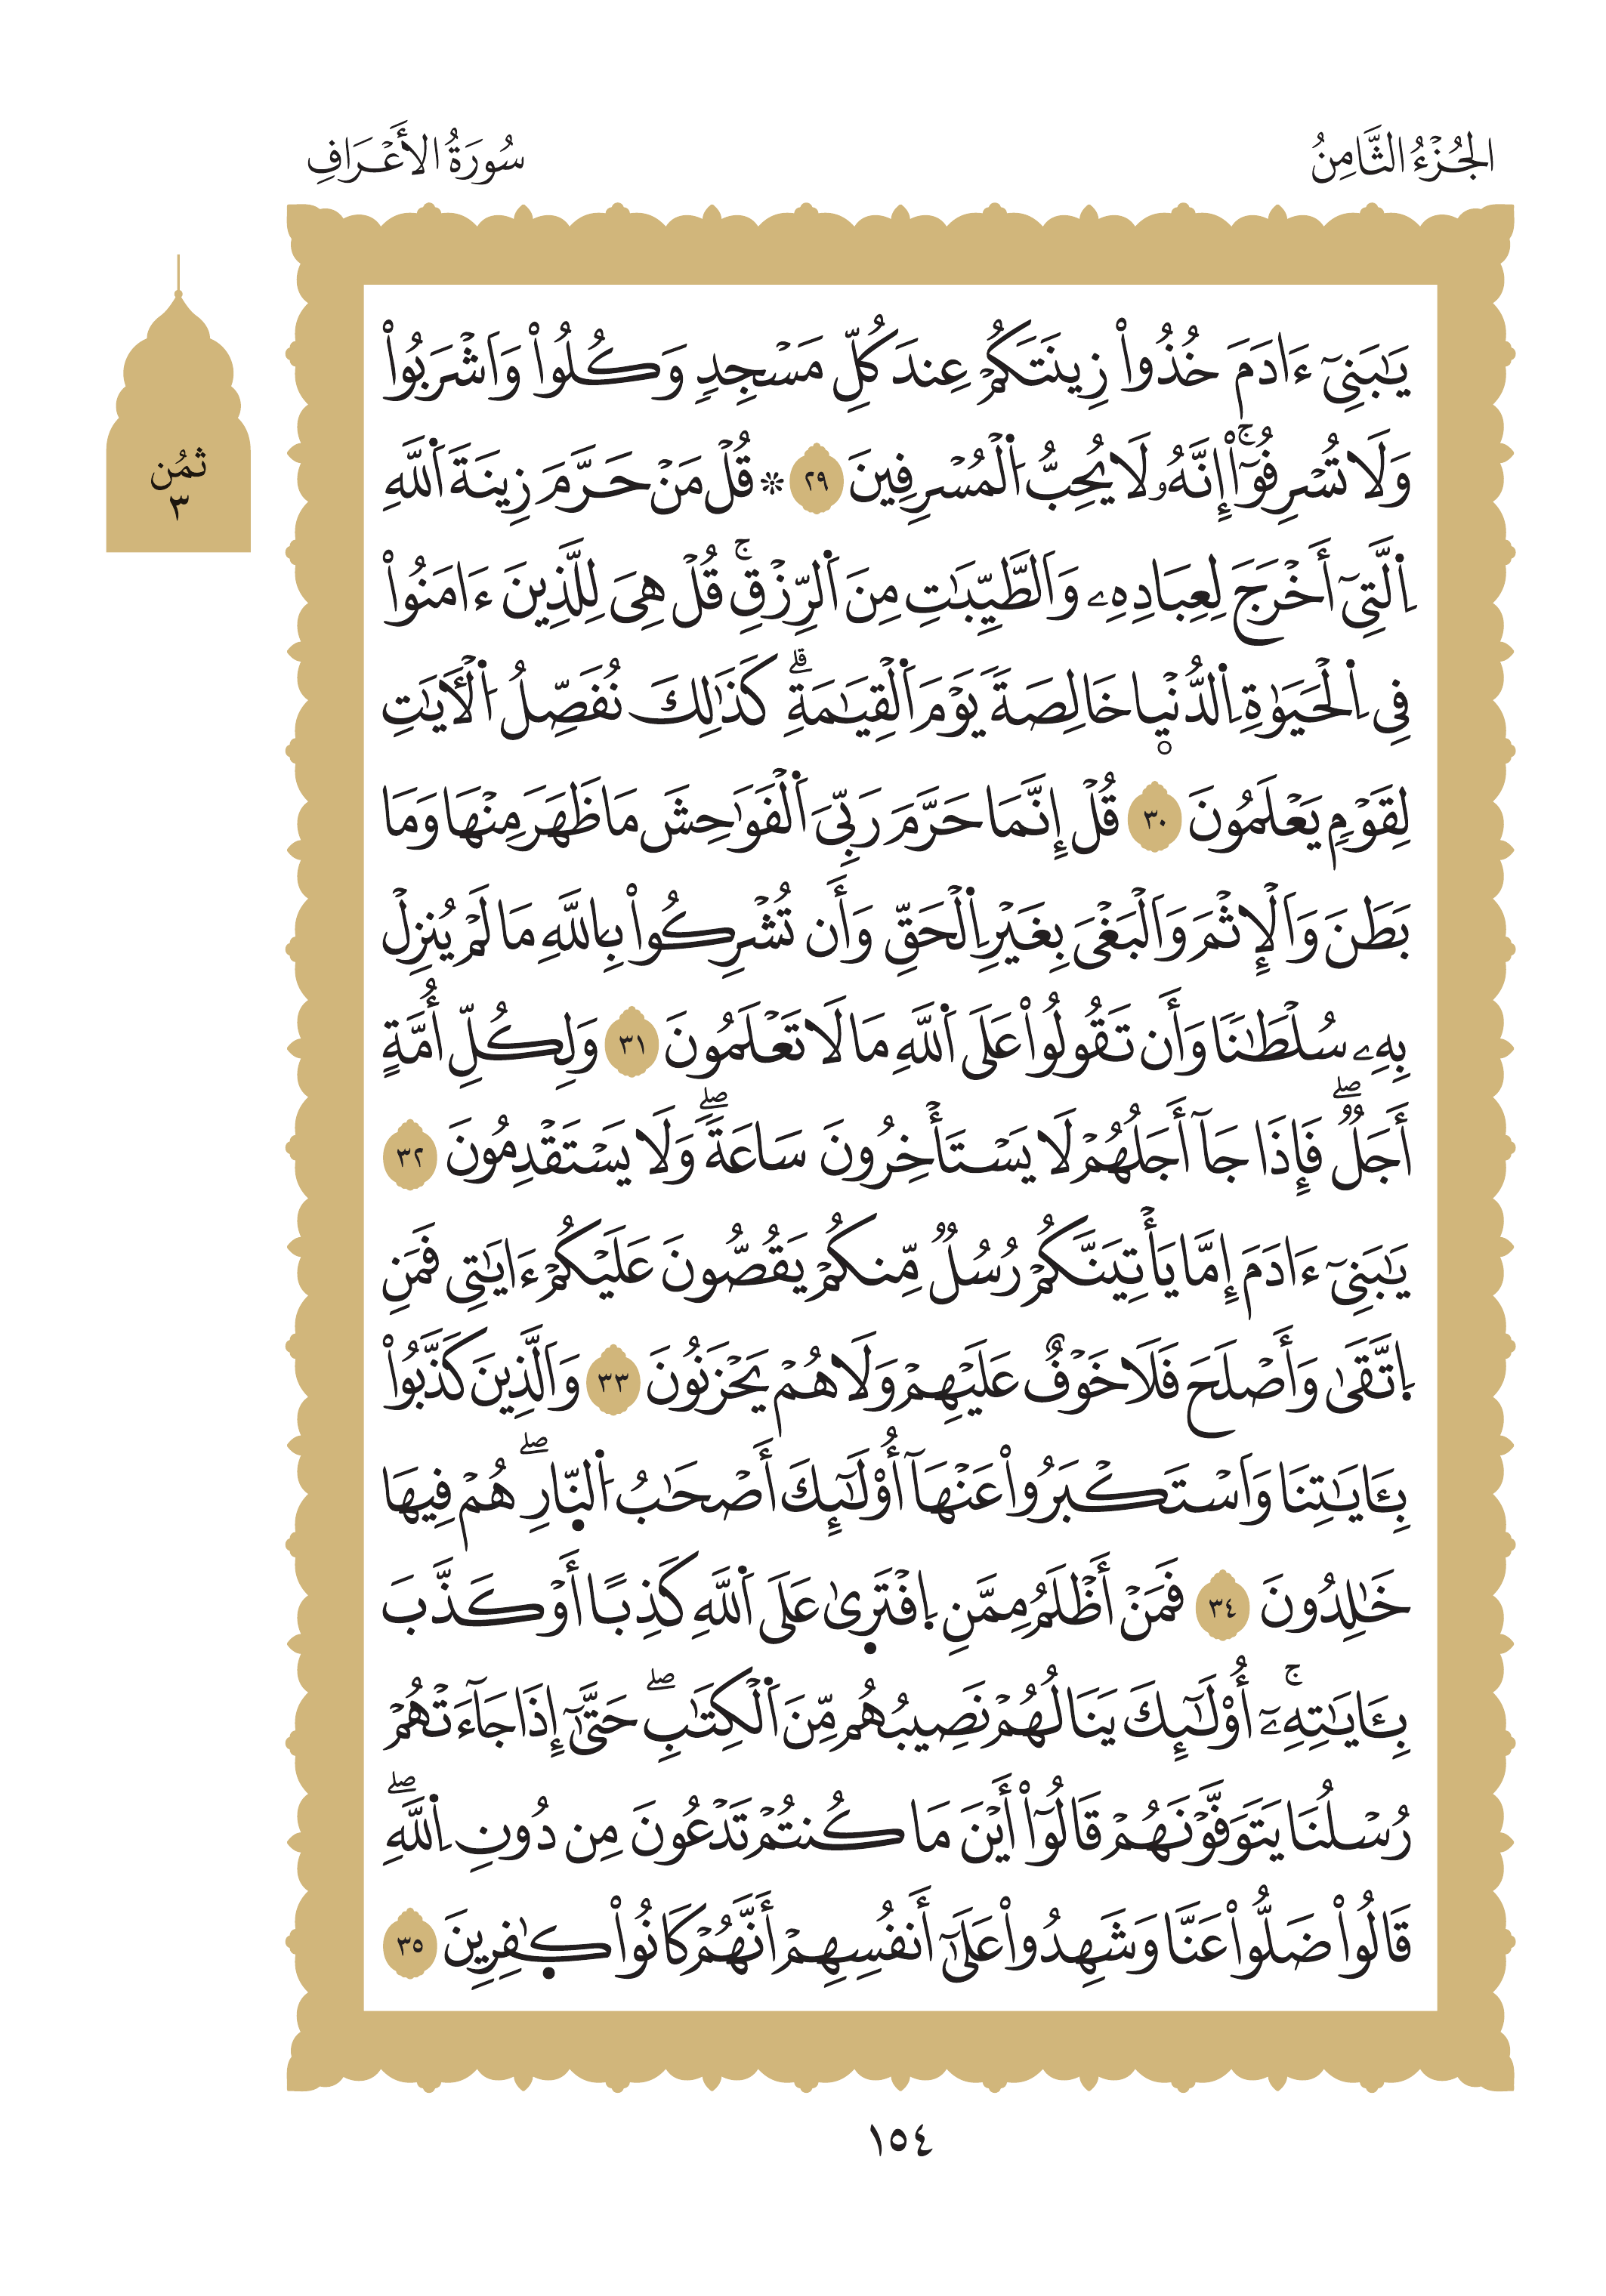 الجُزْءُ الثَّامِنُ
سُورَةُ الأَعْرَافِ
ثمُن
٣
يَٰبَنِىٓ ءَادَمَ خُذُواْ زِينَتَكُمْ عِندَ كُلِّ مَسْجِدٖ وَكُلُواْ وَاشْرَبُواْ
وَلَا تُسْرِفُوٓاْۚ إِنَّهُۥ لَا يُحِبُّ اُ۬لْمُسْرِفِينَ ٢٩ ۞ قُلْ مَنْ حَرَّمَ زِينَةَ اَ۬للَّهِ
اِ۬لَّتِىٓ أَخْرَجَ لِعِبَادِهِۦ وَالطَّيِّبَٰتِ مِنَ اَ۬لرِّزْقِۚ قُلْ هِىَ لِلَّذِينَ ءَامَنُواْ
فِى اِ۬لْحَيَوٰةِ اِ۬لدُّنْيا خَالِصَةٗ يَوْمَ اَ۬لْقِيَٰمَةِۗ كَذَٰلِكَ نُفَصِّلُ اُ۬لْأٓيَٰتِ
لِقَوْمٖ يَعْلَمُونَ ٣٠ قُلْ إِنَّمَا حَرَّمَ رَبِّىَ اَ۬لْفَوَٰحِشَ مَا ظَهَرَ مِنْهَا وَمَا
بَطَنَ وَالْإِثْمَ وَالْبَغْىَ بِغَيْرِ اِ۬لْحَقِّ وَأَن تُشْرِكُواْ بِاللَّهِ مَا لَمْ يُنزِلْ
بِهِۦ سُلْطَٰنٗا وَأَن تَقُولُواْ عَلَى اَ۬للَّهِ مَا لَا تَعْلَمُونَ ٣١ وَلِكُلِّ أُمَّةٍ
أَجَلٞۖ فَإِذَا جَآ أَجَلُهُمْ لَا يَسْتَأْخِرُونَ سَاعَةٗۖ وَلَا يَسْتَقْدِمُونَ ٣٢
يَٰبَنِىٓ ءَادَمَ إِمَّا يَأْتِيَنَّكُمْ رُسُلٞ مِّنكُمْ يَقُصُّونَ عَلَيْكُمْ ءَايَٰتِى فَمَنِ
اِ۪تَّقَىٰ وَأَصْلَحَ فَلَا خَوْفٌ عَلَيْهِمْ وَلَا هُمْ يَحْزَنُونَ ٣٣ وَالَّذِينَ كَذَّبُواْ
بِـَٔايَٰتِنَا وَاسْتَكْبَرُواْ عَنْهَآ أُوْلَٰٓئِكَ أَصْحَٰبُ اُ۬لنّ۪ارِۖ هُمْ فِيهَا
خَٰلِدُونَ ٣٤ فَمَنْ أَظْلَمُ مِمَّنِ اِ۪فْتَر۪ىٰ عَلَى اَ۬للَّهِ كَذِبًا أَوْ كَذَّبَ
بِـَٔايَٰتِهِۦٓۚ أُوْلَٰٓئِكَ يَنَالُهُمْ نَصِيبُهُم مِّنَ اَ۬لْكِتَٰبِۖ حَتَّىٰٓ إِذَا جَآءَتْهُمْ
رُسْلُنَا يَتَوَفَّوْنَهُمْ قَالُوٓاْ أَيْنَ مَا كُنتُمْ تَدْعُونَ مِن دُونِ اِ۬للَّهِۖ
قَالُواْ ضَلُّواْ عَنَّا وَشَهِدُواْ عَلَىٰٓ أَنفُسِهِمْ أَنَّهُمْ كَانُواْ كٰ۪فِرِينَ ٣٥
١٥٤